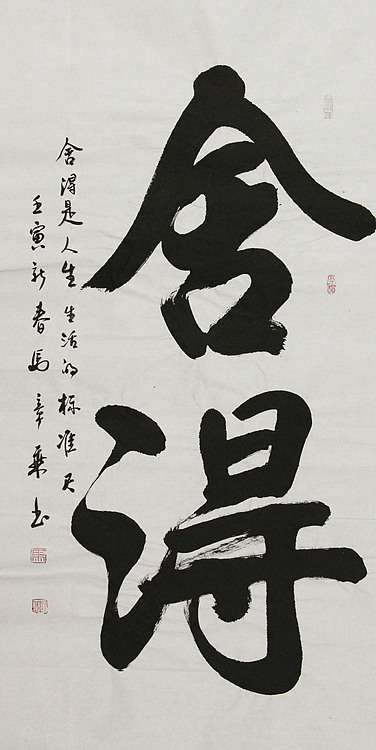 舍得
舍得是人生生活的标准尺
壬寅新春马章乘书